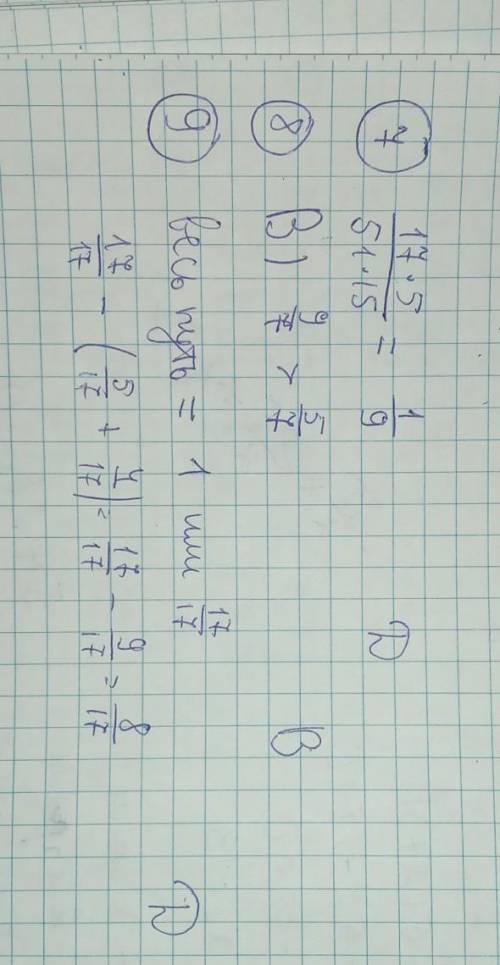 7 17·5/51·15 = 1/9 D
8 B) 9/7 > 5/7 B
9 весь путь = 1 или 17/17
17/17 - (5/17 + 4/17) = 17/17 - 9/17 = 8/17
D